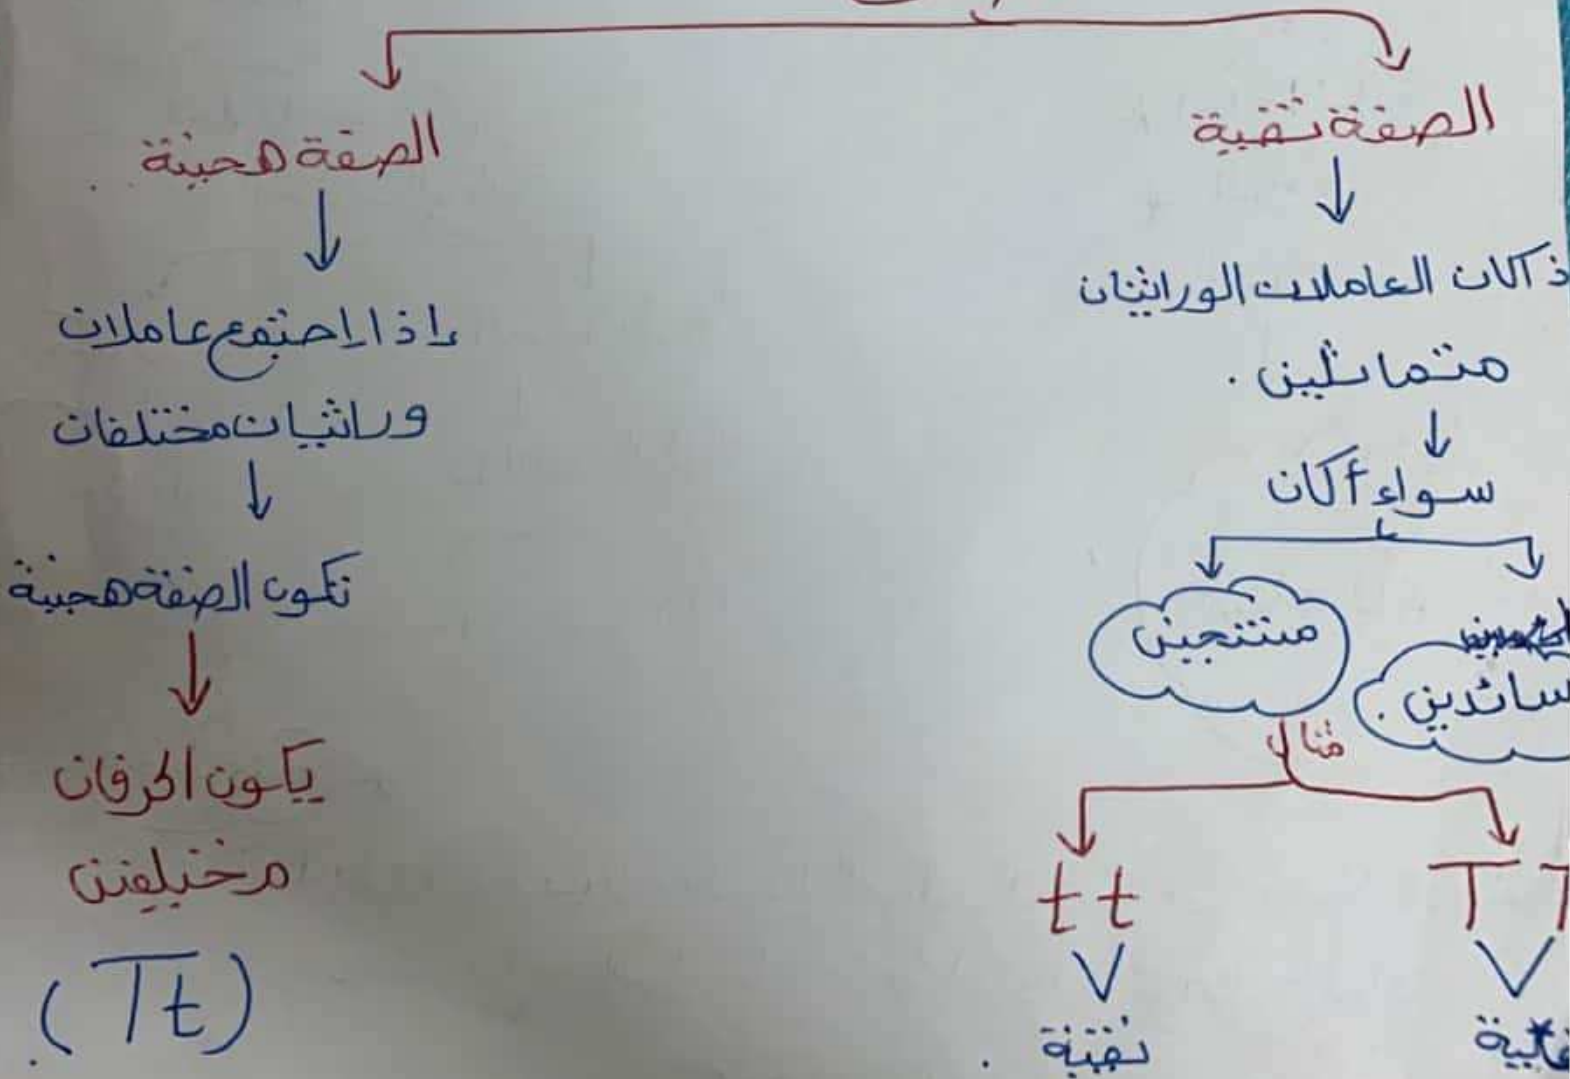 الصفة نقية
ذا كان العاملان الوراثيان
متماثلين .
سواء أكان
سائدين .
منتحيين
مثال
T T
t t
نقية .
الصفة هجينة .
إذا إجتمع عاملان
وراثيان مختلفان
تكون الصفة هجينة
يكون الحرفان
مختلفين
(Tt) .